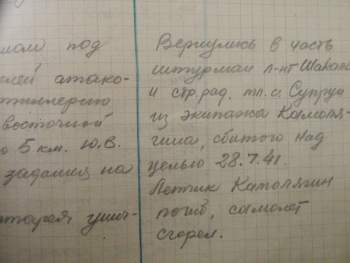 лом под
лей атако-
ттилерию
восточной
о 5 км. Ю.В.
задания на
тарея унич-
Вернулись в часть
штурман л-нт
и стр.рад. мл. с. Супрун
из экипажа Камоля-
гина, сбитого над
целью 28.7.41.
Летчик Камолягин
погиб, самолет
сгорел.